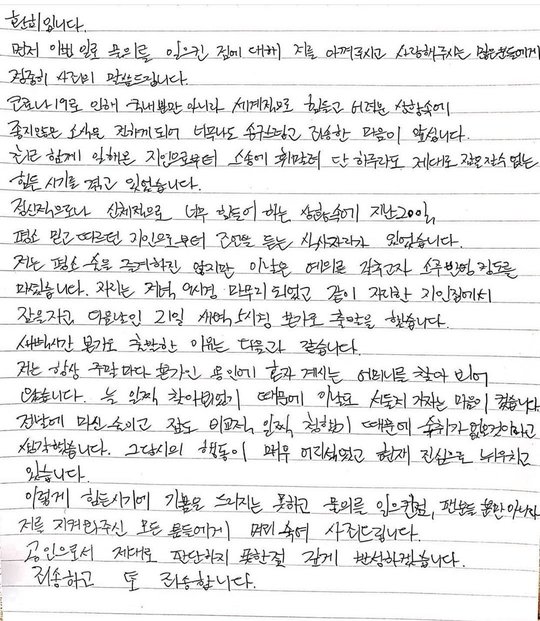 환희입니다.
먼저 이번 일로 물의를 일으킨 점에 대해 저를 아껴주시고 사랑해주시는 많은분들에게
정중히 사과의 말씀드립니다.
코로나19로 인해 국내뿐만 아니라 세계적으로 힘들고 어려운 상황속에
좋지않은 소식을 전하게 되어 너무나도 송구스럽고 죄송한 마음이 앞섭니다.
최근 함께 일해온 지인으로부터 소송에 휘말려 단 하루라도 제대로 잠을 잘수 없는
힘든 시기를 겪고 있었습니다.
정신적으로나 신체적으로 너무 힘들어 하는 상황속에 지난 20일,
평소 믿고 따르던 지인으로부터 조언을 듣는 식사자리가 있었습니다.
저는 평소 술을 즐겨하진 않지만 이날은 예의를 갖추고자 소주 반병 정도를
마셨습니다. 자리는 저녁 9시경 마무리 되었고 같이 자리한 지인집에서
잠을자고 다음날인 21일 새벽 5시경 본가로 출발을 했습니다.
새벽시간 본가로 출발한 이유는 다음과 같습니다.
저는 항상 주말마다 본가인 용인에 혼자 계시는 어머니를 찾아 뵈어
왔습니다. 늘 일찍 찾아뵈었기 때문에 이날도 서둘러 가자는 마음이 컸습니다.
전날에 마신 술이고 잠도 비교적 일찍 청했기 때문에 숙취가 없을것이라고
생각했습니다. 그당시의 행동이 매우 어리석었고 현재 진심으로 뉘우치고
있습니다.
이렇게 힘든시기에 기쁨을 드리지는 못하고 물의를 일으킨점, 팬분들 뿐만 아니라
저를 지켜봐주신 모든 분들에게 머리숙여 사죄드립니다.
공인으로서 제대로 판단하지 못한점 깊게 반성하겠습니다.
죄송하고 또 죄송합니다.